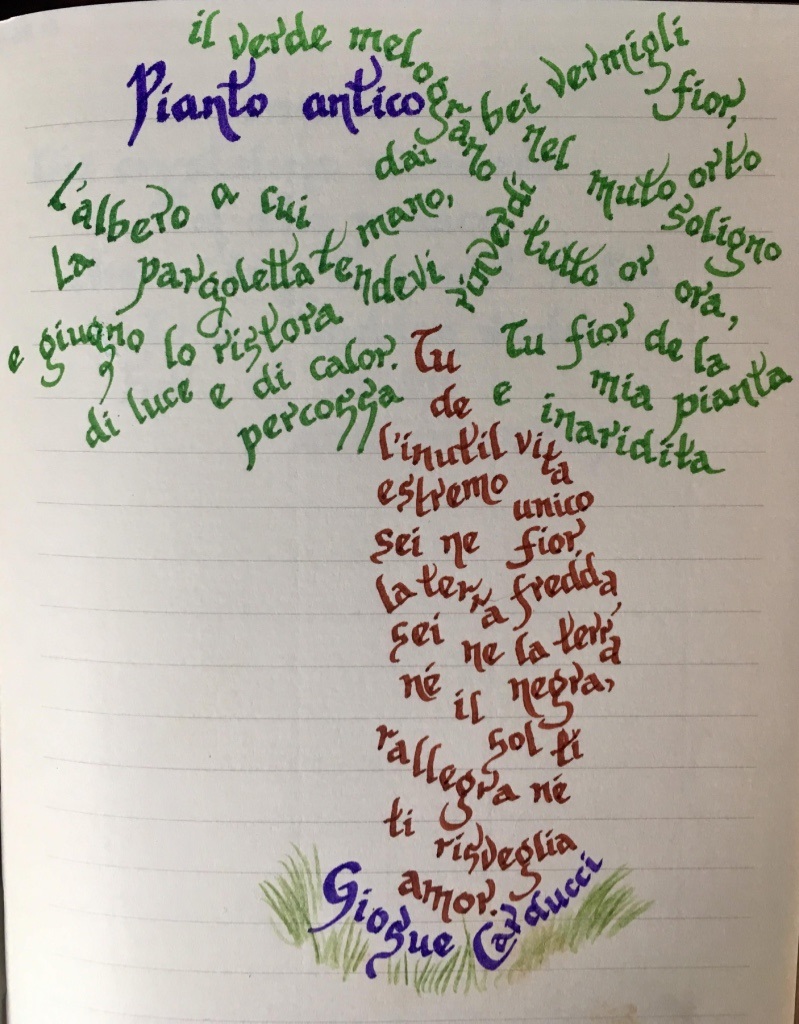 il verde melograno
Pianto antico
dai bei vermigli
fior,
l'albero a cui
nel muto orto
soligno
la pargoletta mano,
tendevi
rinverdì tutto or
ora,
e giugno lo ristora
di luce e di calor.
Tu fior de la
mia pianta
percossa
e inaridita
Tu
de
l'inutil vita
estremo unico
sei ne fior,
la terra fredda,
sei ne la terra
né il negra,
sol ti
rallegra né
ti risveglia
amor.
Giosue Carducci